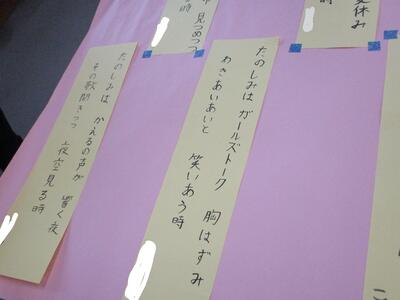 夏休み
時
見つめつつ
時
たのしみは ガールズトーク 胸はずみ
わきあいあいと 笑いあう時
たのしみは かえるの声が 響く夜
その歌聞きつつ 夜空見る時